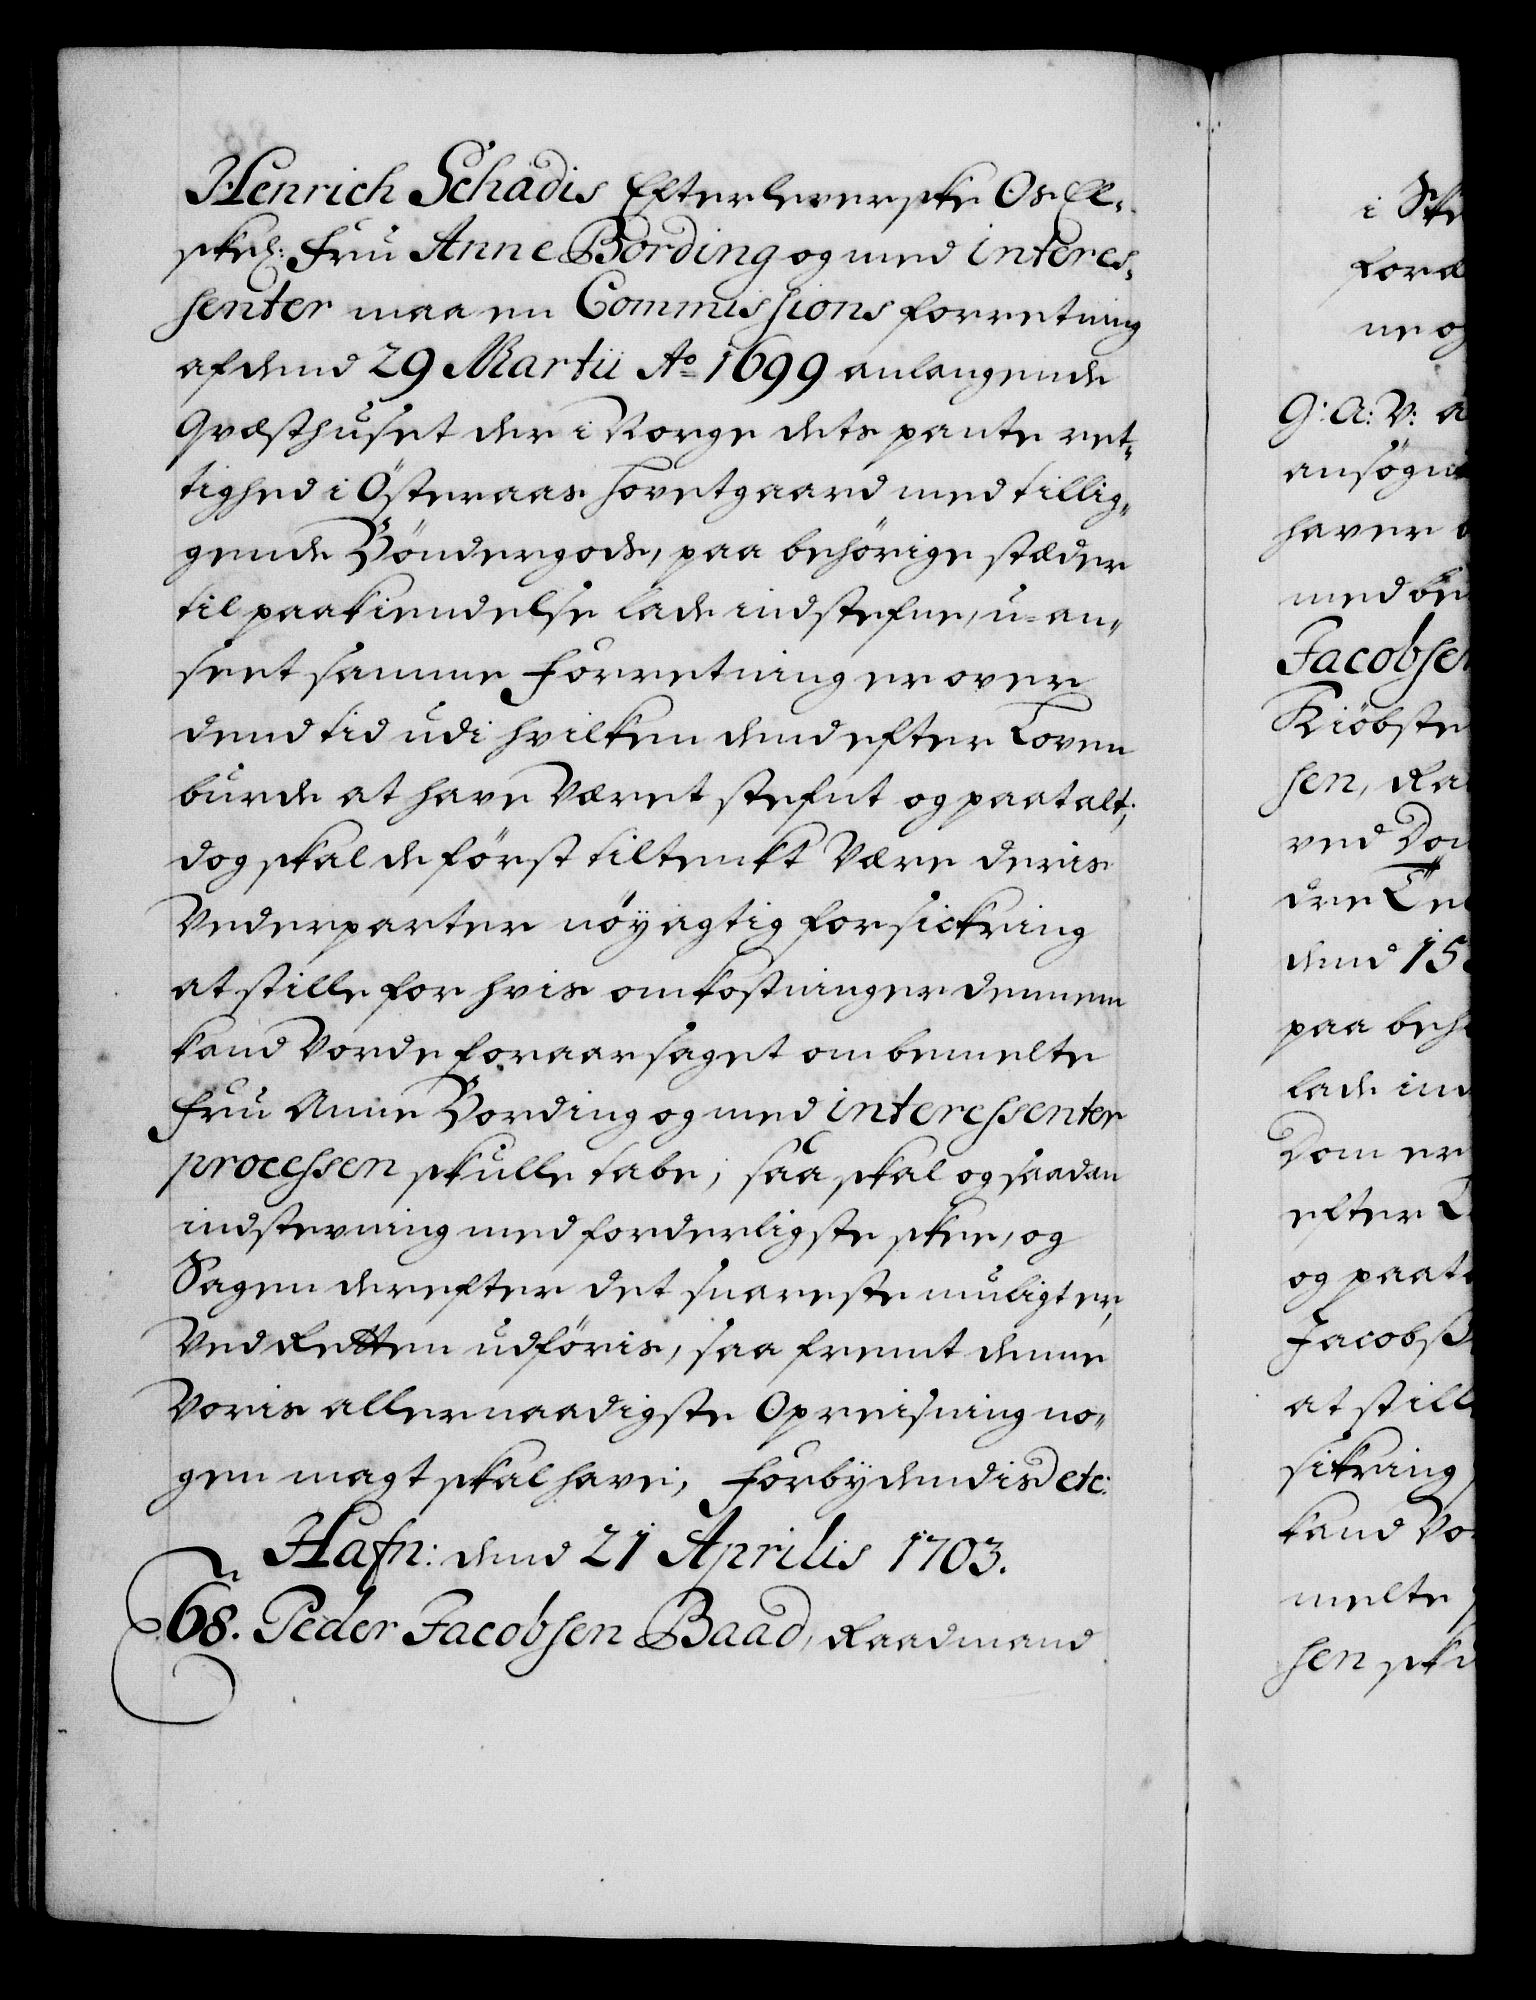 Henrich Schädis Efterleverske Os El-
skel: Fru Anne Bording og med interes-
senter maa en Commissions forretning
af dend 29 Martii Ao 1699 anlangende
Qvæsthuset der i Norge dets pante ret-
tighed i Österaas hovetgaard med tillig-
gende Böndergods, paa behörige stæder
til paakiendelse lade indstefne, u-an-
seet samme Forretning er over
dend tid udi hvilken dend efter Loven
burde at have Været stefnt og paatalt,
dog skal de först tiltenkt Være deris
Vederparter nöyagtig forsickring
at stille for hvis omkostninger dennem
kand Vorde foraarsaget om bemelte
Fru Anne Bording og med interessenter
processen skulle tabe; saa skal og saadan
indstevning med forderligste skee, og
Sagen derefter det snareste muligt er,
Ved Retten udföris, saa fremt denne
Voris allernaadigste Opreisning no-
gen magt skal have, Forbydendis etc:
Hafn: dend 21 Aprilis 1703.
68. Peder Jacobsen Baad, Raadmand
i Ske
ne og
G: A: V: a
ansögn
haver
med be
Jacobsen
Kiöbste
sen, Ra
ved Dom
dend 15
paa beh
lade ind
Dom er
efter L
og paat
Jacobs
at stille
sikring
kand Vo
melte
sen sku